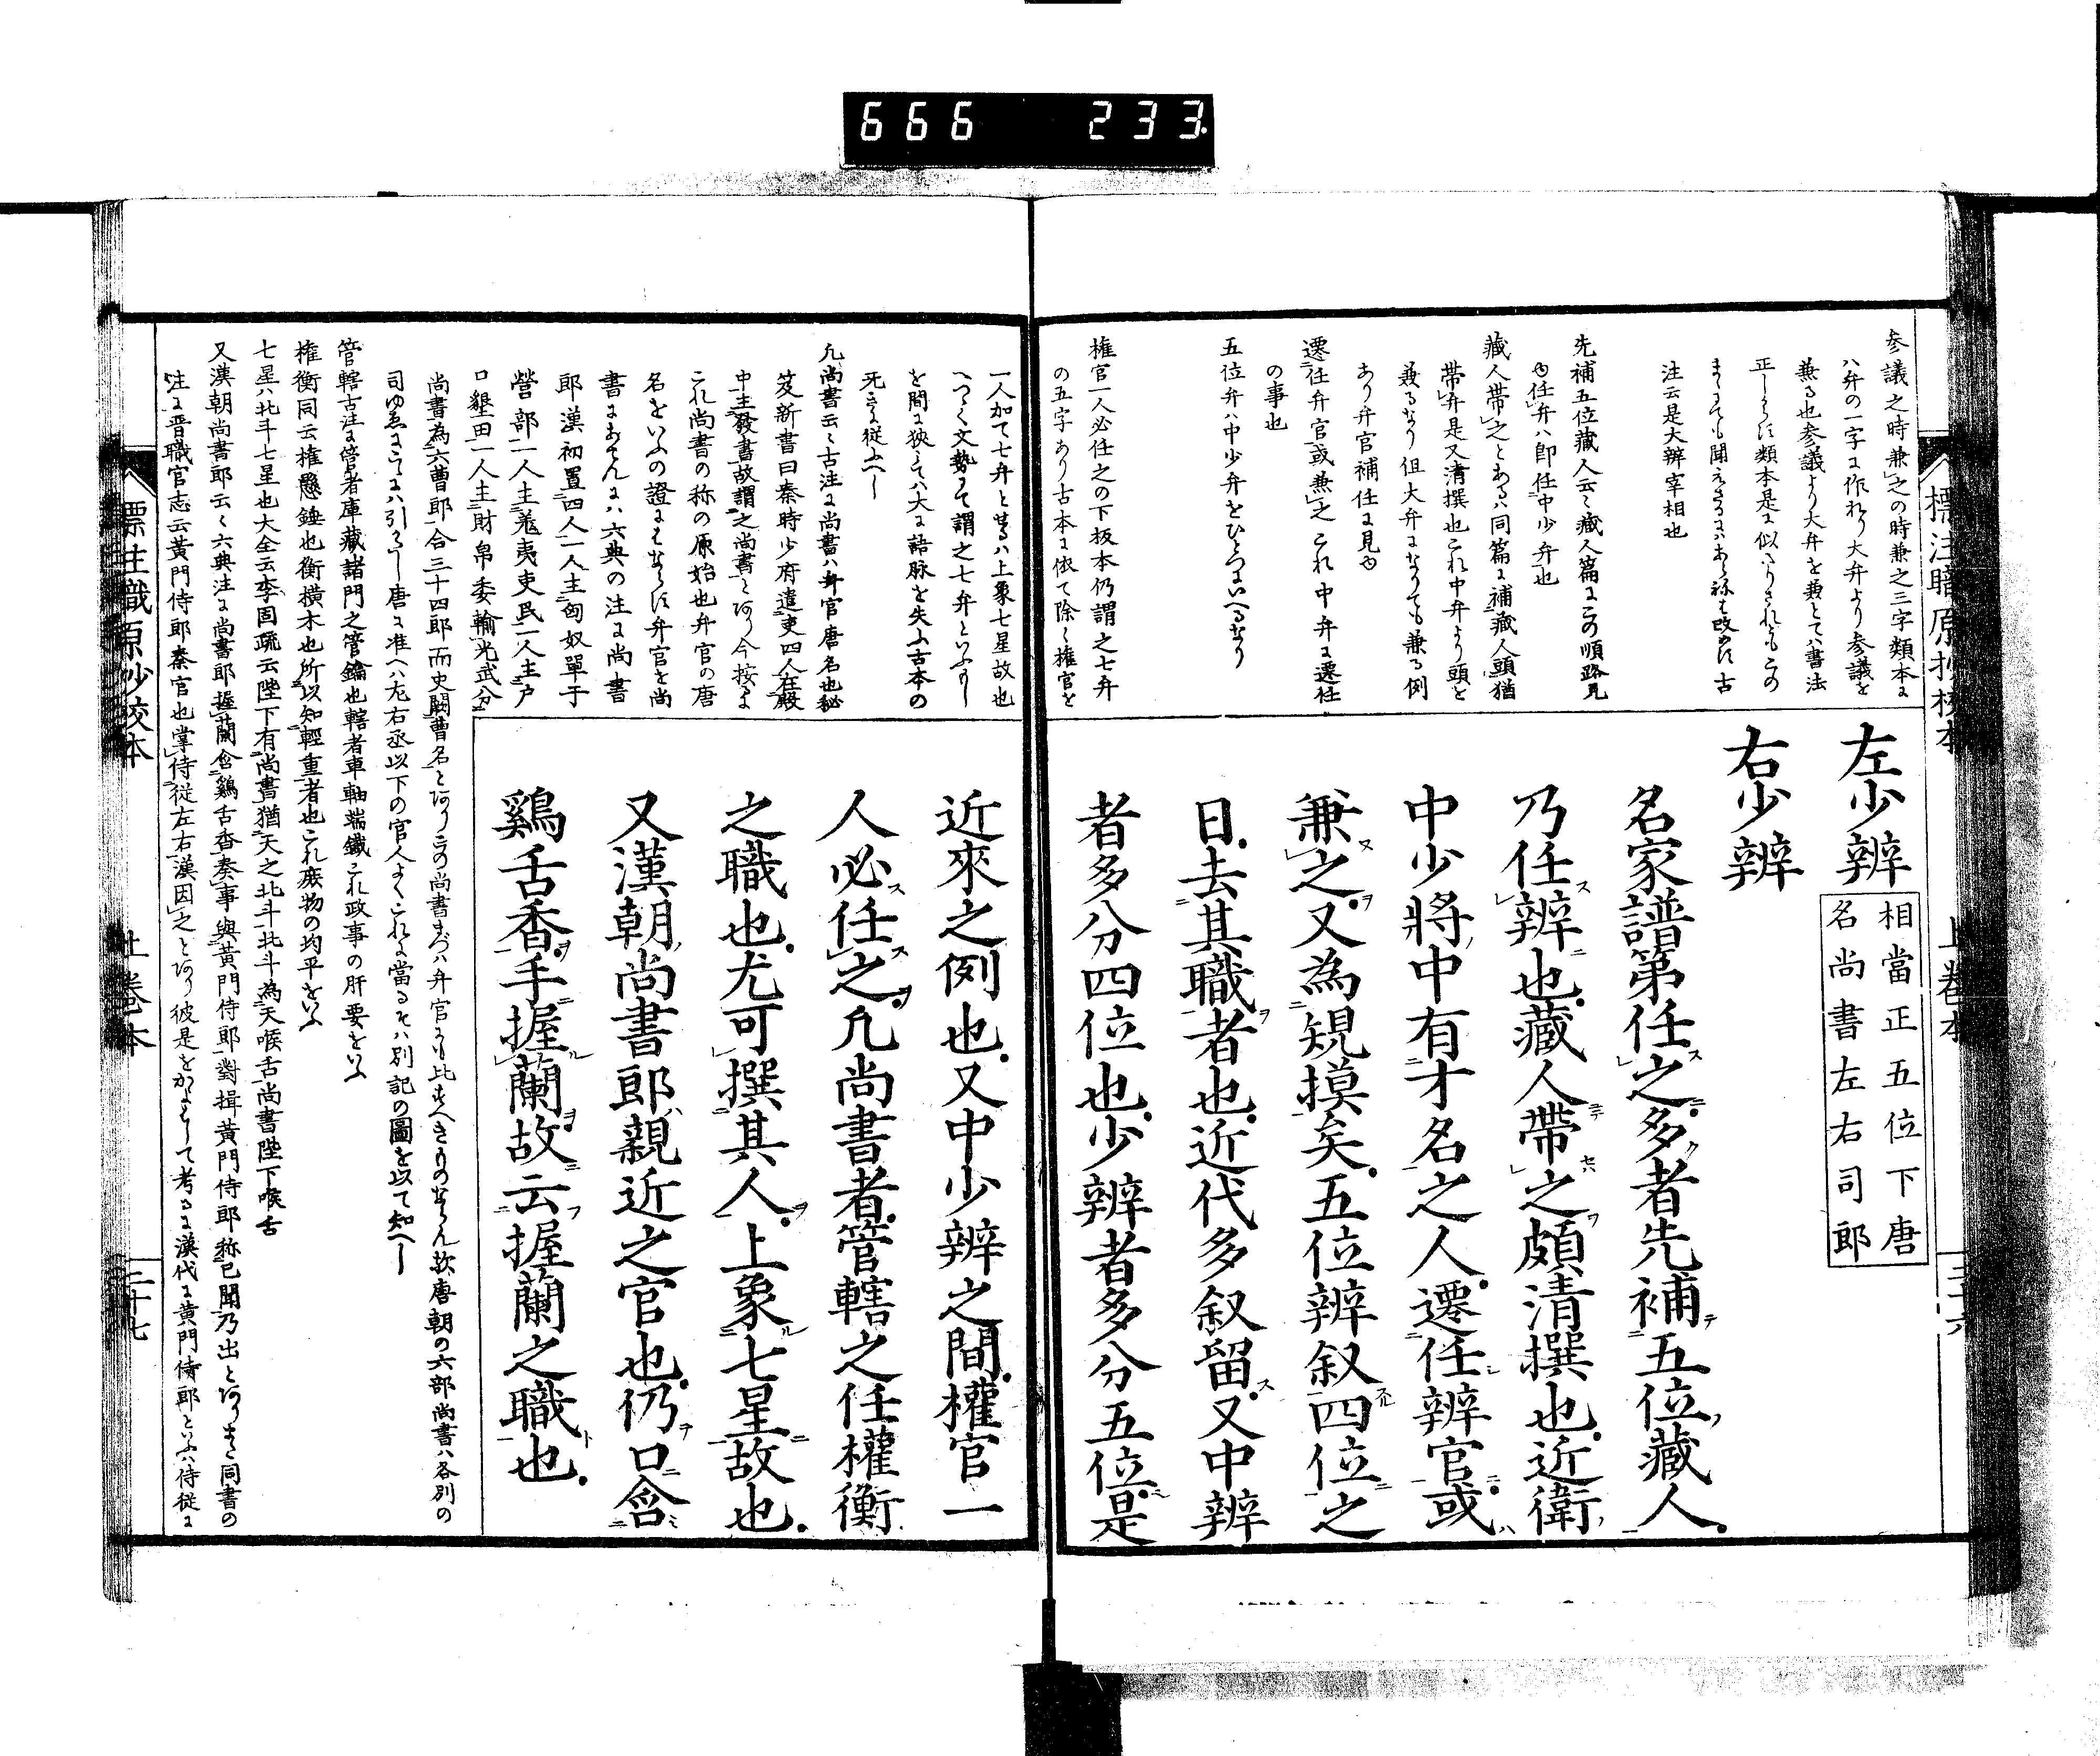 666 233.
標注職原抄校本 上卷本 二十六
参議之時兼之の時兼之三字類本に
ハ弁の一字に作れり大弁より参議を
兼る也参議より大弁を兼とてハ書法
注云是大辨宰相也
先補五位藏人云々藏人篇にこの順路見
ゆ任弁ハ即任中少弁也
藏人帶之とあるハ同篇に補藏人頭猶
帶弁是又清撰也これ中弁より頭を
兼るなり但大弁になりても兼る例
あり弁官補任に見ゆ
遷任弁官或兼之これ中弁に遷任
の事也
五位弁ハ中少弁をひとつにいへるなり
權官一人必任之の下板本仍謂之七弁
の五字あり古本に依て除く權官を
左少辨
相當正五位下唐
名尚書左右司郎
右少辨
名家譜第任之多者先補五位藏人
乃任辨也藏人帶之頗清撰也近衛
中少將中有才名之人遷任辨官或
兼之又為規摸矣五位辨叙四位之
日去其職者也近代多叙留又中辨
者多分四位也少辨者多分五位是
一人加て七弁とするハ上象七星故也
へつゝく文勢にて謂之七弁といふ事
を間に狹てハ大に語脉を失ふ古本の
凡尚書云々古注に尚書ハ弁官唐名也秘
笈新書曰秦時少府遣吏四人在殿
中主發書故謂之尚書とあり今按に
これ尚書の称の原始也弁官の唐
名をいふの證にはならす弁官を尚
書にあてんにハ六典の注に尚書
郎漢初置四人一人主匈奴單于
營部一人主羗夷吏民一人主戸
口墾田一人主財帛委輸光武分
尚書為六曹郎合三十四郎而史闕曹名とありこの尚書ならハ弁官にも比すへきものならん歟唐朝の六部尚書ハ各別の
司ゆゑにこゝにハ引かし唐に准へハ左右丞以下の官人よくこれに當るそハ別記の圖を以て知へし
管轄古注に管者庫藏諸門之管鑰也轄者車軸端鐵これ政事の肝要をいふ
權衡同云權懸錘也衡横木也所以知輕重者也これ庶物の均平をいふ
七星ハ北斗七星也大全云李固疏云陛下有尚書猶天之北斗北斗為天喉舌尚書陛下喉舌
又漢朝尚書郎云々六典注に尚書郎握蘭含鷄舌香奏事與黄門侍郎對揖黄門侍郎称已聞乃出とあり又同書の
注に晋職官志云黄門侍郎秦官也掌侍從左右漢因之とあり彼是をかよはして考るに漢代に黄門侍郎といふハ侍從に
近來之例也又中少辨之間權官一
人必任之凡尚書者管轄之任權衡
之職也尤可撰其人上象七星故也
又漢朝尚書郎親近之官也仍口含
鷄舌香手握蘭故云握蘭之職也
標注職原抄校本 上卷本 二十七